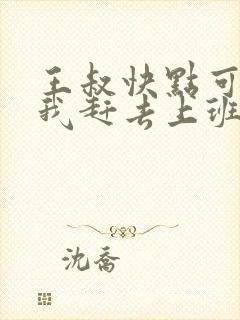 王叔快點可
我赶去上班
沈喬